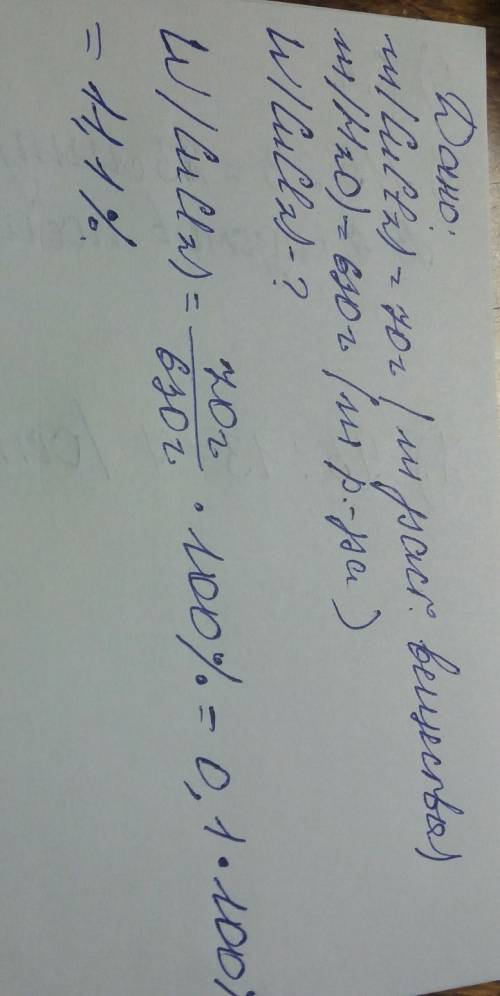 Дано:
m(CuCl2) = 70г (m раст. вещества)
m(H2O) = 630г (m р-ра)
W(CuCl2) - ?
W(CuCl2) = 70г/630г · 100% = 0,1 · 100%
= 11,1%